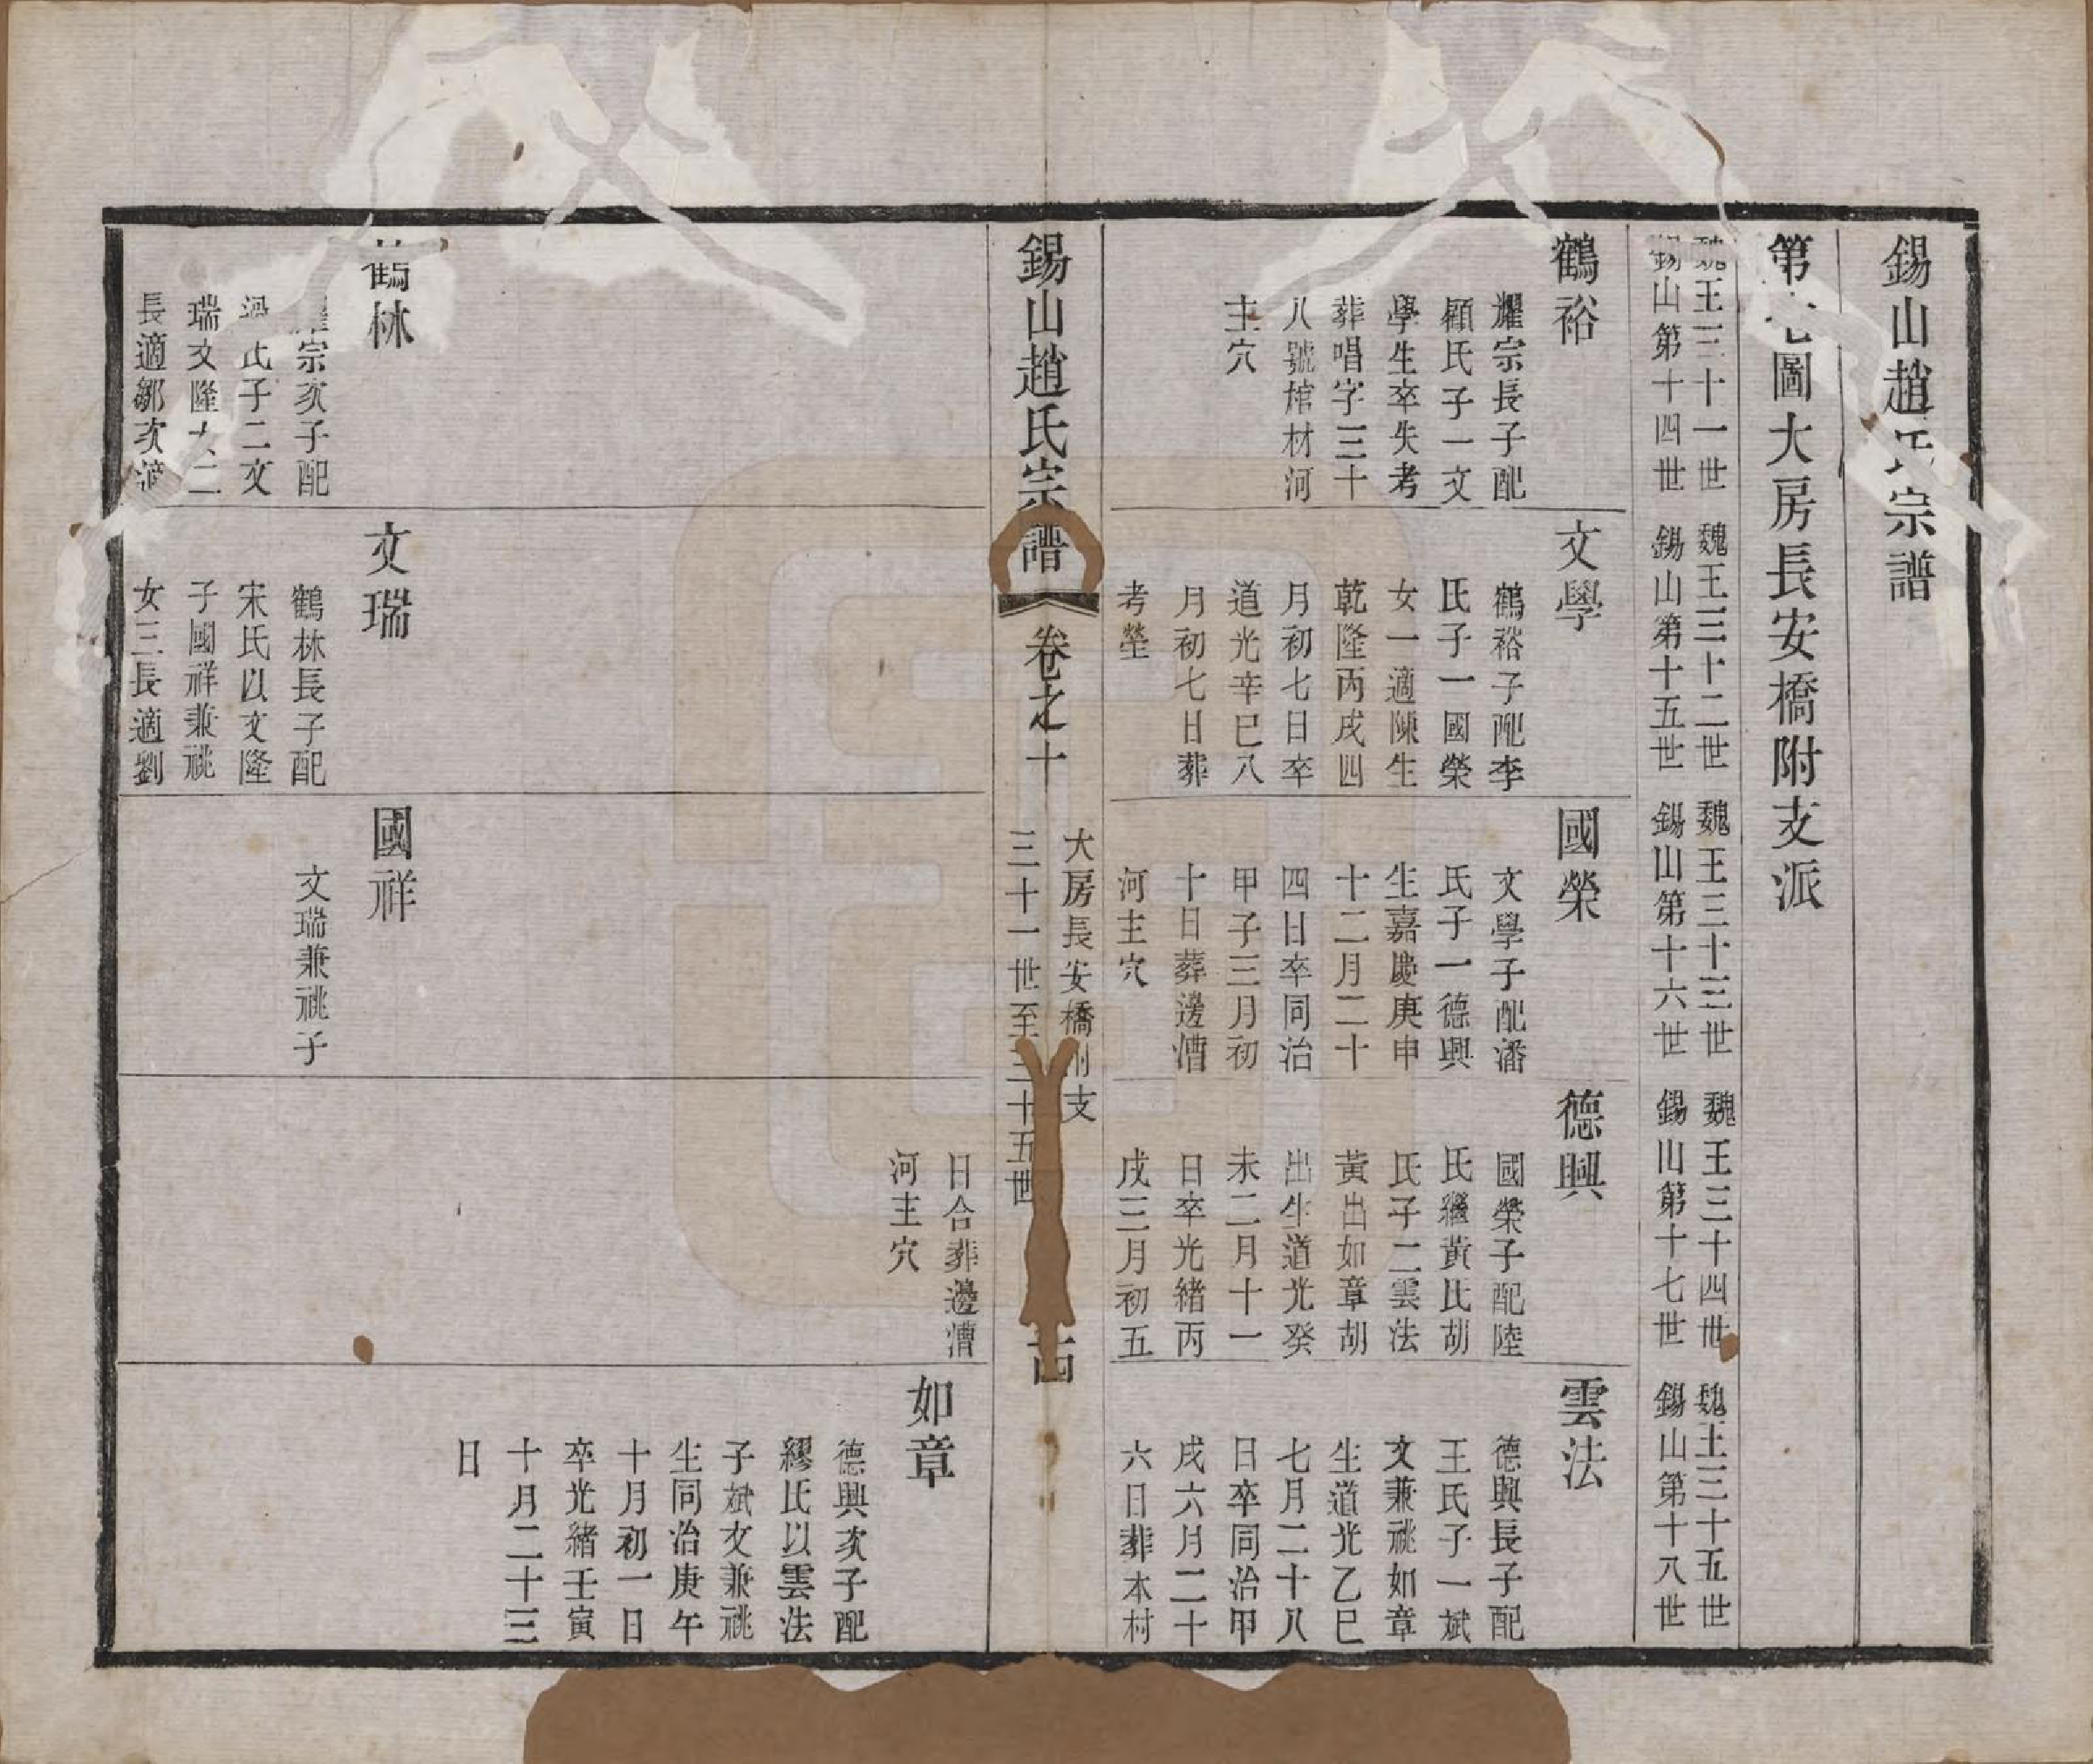 錫山趙氏宗譜
第七圖大房長安橋附支派
魏王三十一世
錫山第十四世
魏王三十二世
錫山第十五世
魏王三十三世
錫山第十六世
魏王三十四世
錫山第十七世
魏王三十五世
錫山第十八世
鶴裕
耀宗長子配
顧氏子一文
學生卒失考
葬唱字三十
八號棺材河
主穴
文學
鶴裕子配李
氏子一國榮
女一適陳生
乾隆丙戌四
月初七日卒
道光辛巳八
月初七日葬
考塋
國榮
文學子配潘
氏子一德興
生嘉慶庚申
十二月二十
四日卒同治
甲子三月初
十日葬邊漕
河主穴
德興
國榮子配陸
氏繼黃氏胡
氏子二雲法
黃出如章胡
出生道光癸
未二月十一
日卒光緒丙
戌三月初五
日合葬邊漕
河主穴
雲法
德興長子配
王氏子一斌
文兼祧如章
生道光乙巳
七月二十八
日卒同治甲
戌六月二十
六日葬本村
錫山趙氏宗譜
卷之十
大房長安橋附支
三十一世至三十五世
如章
德興次子配
繆氏以雲法
子斌文兼祧
生同治庚午
十月初一日
卒光緒壬寅
十月二十三
日
鶴林
宗次子配
氏子二文
瑞文隆女二
長適鄒次適
文瑞
鶴林長子配
宋氏以文隆
子國祥兼祧
女三長適劉
國祥
文瑞兼祧子